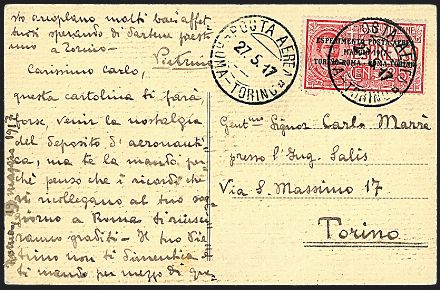 sto aeroplano molti baci affet-
tuosi sperando di fartene presto
uno a Torino -
Pietrino
Carissimo Carlo,
questa cartolina ti farà,
forse, venir la nostalgia
del deposito d'aeronauti
ca, ma te la mando per-
chè penso che i ricordi che
si collegano al tuo sog-
giorno a Roma ti riusci
ranno graditi - Il tuo Pie
trino non ti dimentica
ti manda per mezzo di que-
Roma, 19 maggio 1917
POSTA AEREA
ROMA-TORINO
27.5.17
ESPERIMENTO POSTA AEREA
MAGGIO 1917
TORINO-ROMA · ROMA-TORINO
POSTA AEREA
ROMA-TORINO
Gent.mo Signor Carlo Marrè
presso l'Ing. Salis
Via S. Massimo 17
Torino